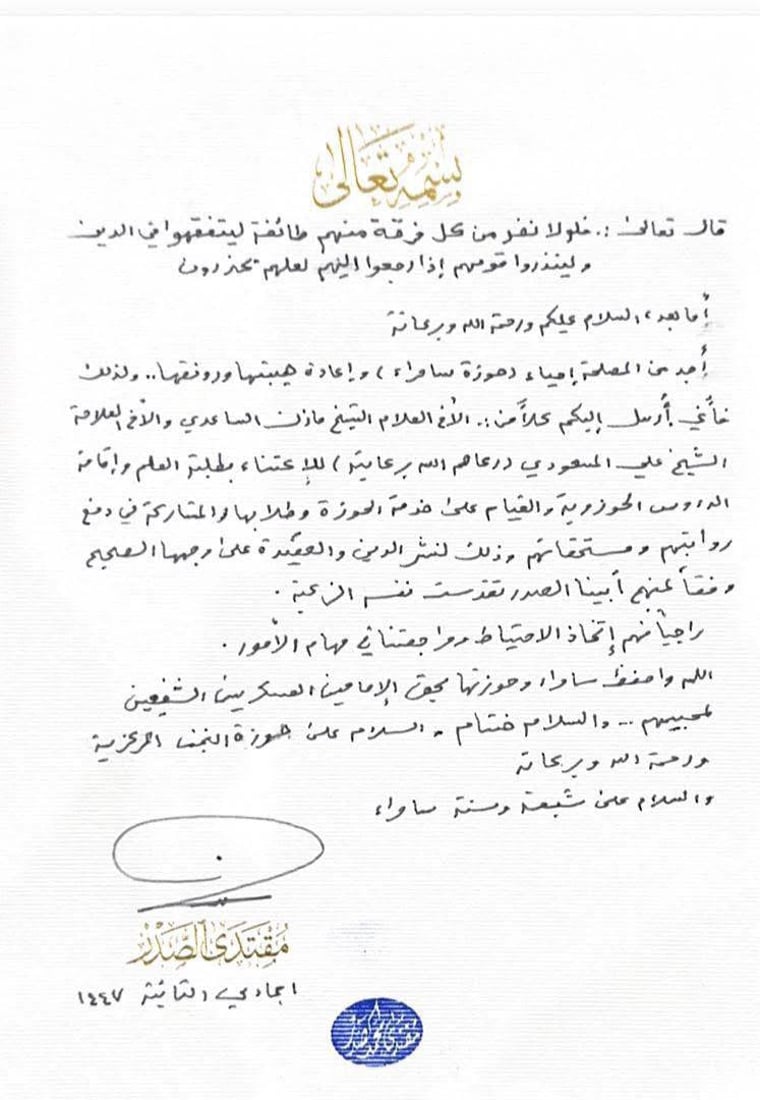 بسمه تعالى
قال تعالى :. فلولا نفر من كل فرقة منهم طائفة ليتفقهوا في الدين
ولينذروا قومهم إذا رجعوا اليهم لعلهم يحذرون
أما بعد، السلام عليكم ورحمة الله وبركاته
أجد من المصلحة إحياء (حوزة سامراء) وإعادة هيبتها ورونقها.. ولذلك
فأني أُرسل إليكم كلاً من :. الأخ العلام الشيخ مازن الساعدي والأخ العلامة
الشيخ علي المسعودي (رعاهم الله برعايته) للإعتناء بطلبة العلم وإقامة
الدروس الحوزوية والقيام على خدمة الحوزة وطلابها والمشاركة في دفع
رواتبهم ومستحقاتهم وذلك لنشر الدين والعقيدة على وجهها الصحيح
وفقاً لمنهج أبينا الصدر تقدست نفسه الزكية .
راجياً منهم إتخاذ الاحتياط ومراجعتنا في مهام الأمور .
اللهم واحفظ سامراء وحوزتها بحق الإمامين العسكريين الشفيعين
لمحبيهم .. والسلام ختام . السلام على حوزة النجف المركزية
ورحمة الله وبركاته
والسلام على شيعة وسنة سامراء
مقتدى الصدر
١ جمادي الثانية ١٤٤٧